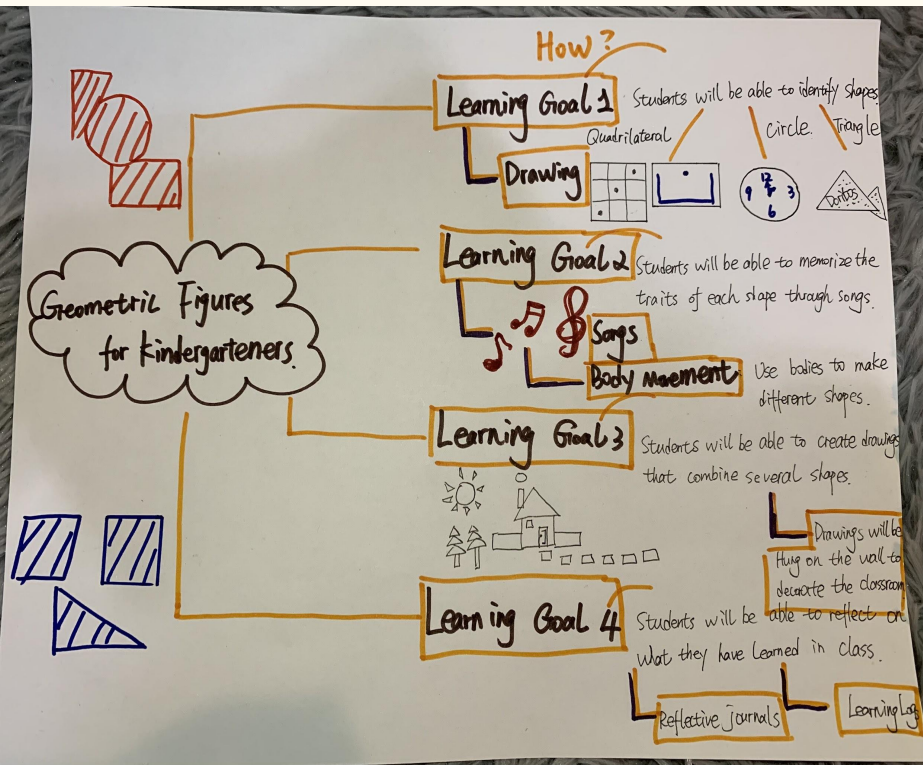 How?
Learning Goal 1
Students will be able to identify shapes.
Quadrilateral
Circle.
Triangle
Drawing
12
9
3
6
Doritos
Geometric Figures
for Kindergarteners.
Learning Goal 2
Students will be able to memorize the
traits of each shape through songs.
Songs
Body Movement
Use bodies to make
different shapes.
Learning Goal 3
Students will be able to create drawings
that combine several shapes.
Drawings will be
Hung on the wall to
decorate the classroom
Learning Goal 4
Students will be able to reflect on
what they have learned in class.
Reflective journals
Learning Log